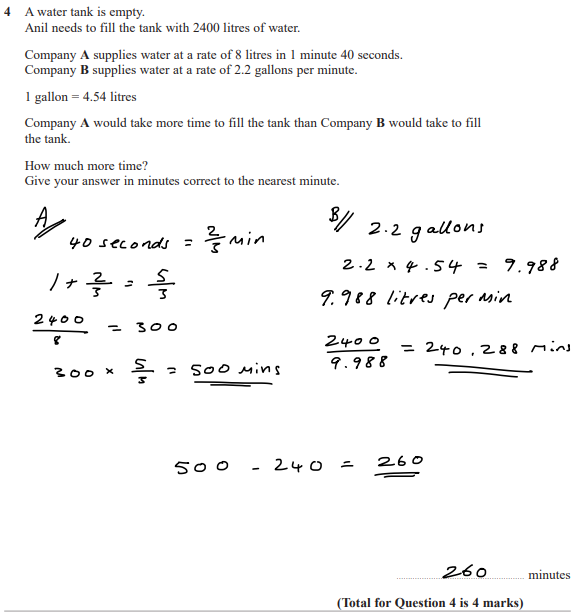 4 A water tank is empty.
Anil needs to fill the tank with 2400 litres of water.
Company A supplies water at a rate of 8 litres in 1 minute 40 seconds.
Company B supplies water at a rate of 2.2 gallons per minute.
1 gallon = 4.54 litres
Company A would take more time to fill the tank than Company B would take to fill
the tank.
How much more time?
Give your answer in minutes correct to the nearest minute.
A//
40 seconds = 2/3 min
1 + 2/3 = 5/3
2400/8 = 300
300 × 5/3 = 500 mins
B//
2.2 gallons
2.2 × 4.54 = 9.988
9.988 litres per min
2400/9.988 = 240.288 mins
500 - 240 = 260
260 minutes
(Total for Question 4 is 4 marks)